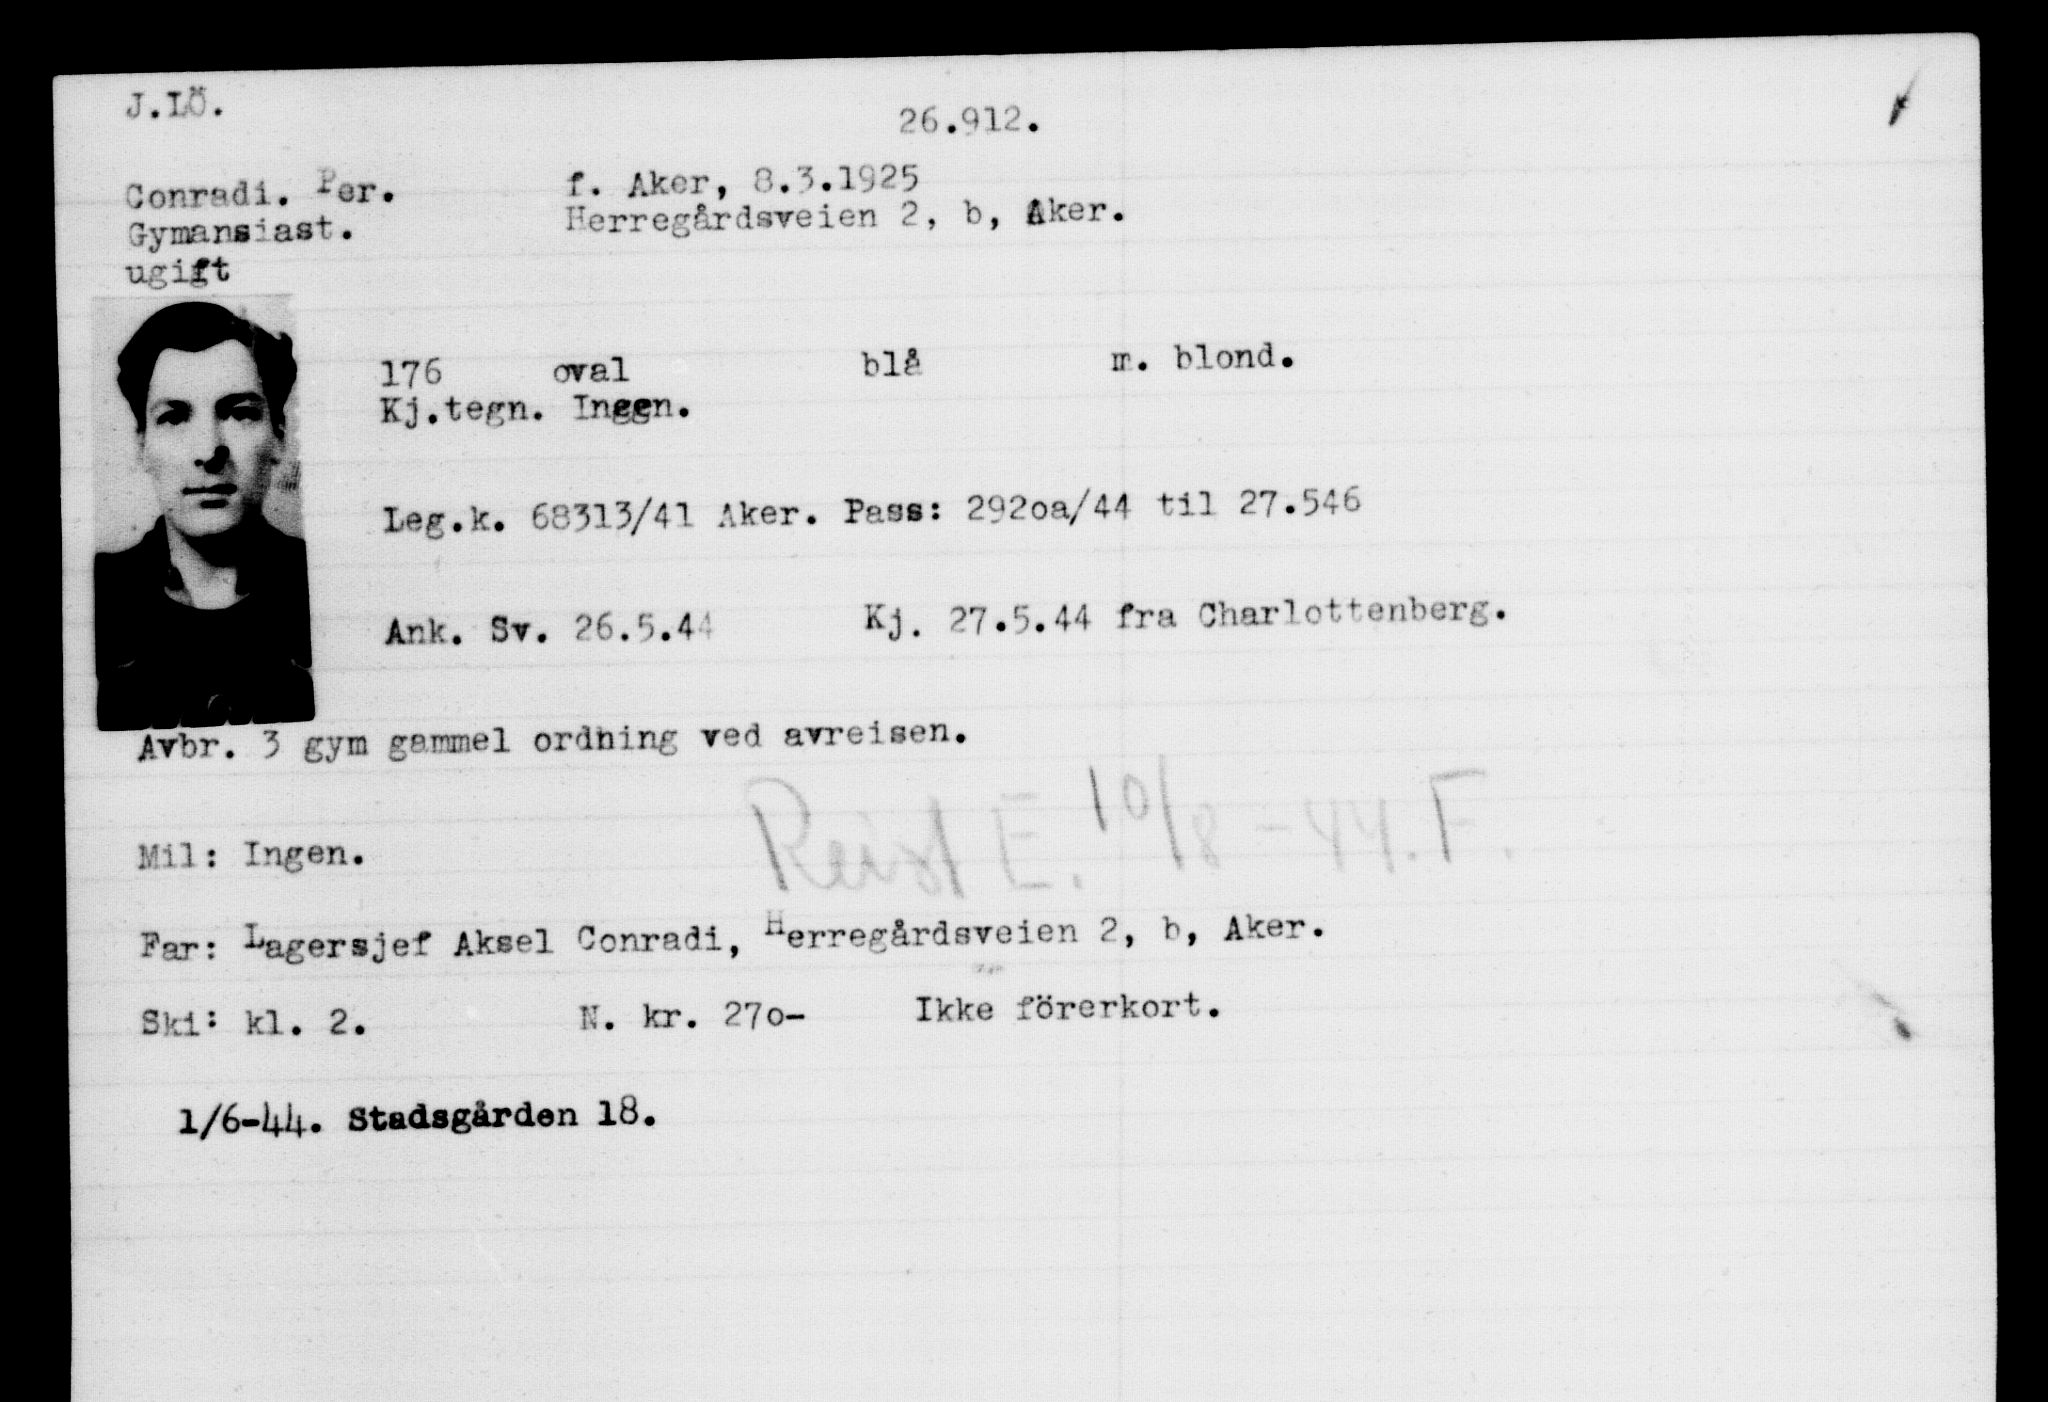 J.LÖ.
26.912.
Conradi. Per. f. Aker, 8.3.1925
Gymansiast. Herregårdsveien 2, b, Aker.
ugift
176 oval blå m. blond.
Kj.tegn. Ingen.
Leg.k. 68313/41 Aker. Pass: 292oa/44 til 27.546
Ank. Sv. 26.5.44 Kj. 27.5.44 fra Charlottenberg.
Avbr. 3 gym gammel ordning ved avreisen.
Reist E. 10/8-44. F.
Mil: Ingen.
Far: Lagersjef Aksel Conradi, Herregårdsveien 2, b, Aker.
Ski: kl. 2. N. kr. 27o- Ikke förerkort.
1/6-44. Stadsgården 18.